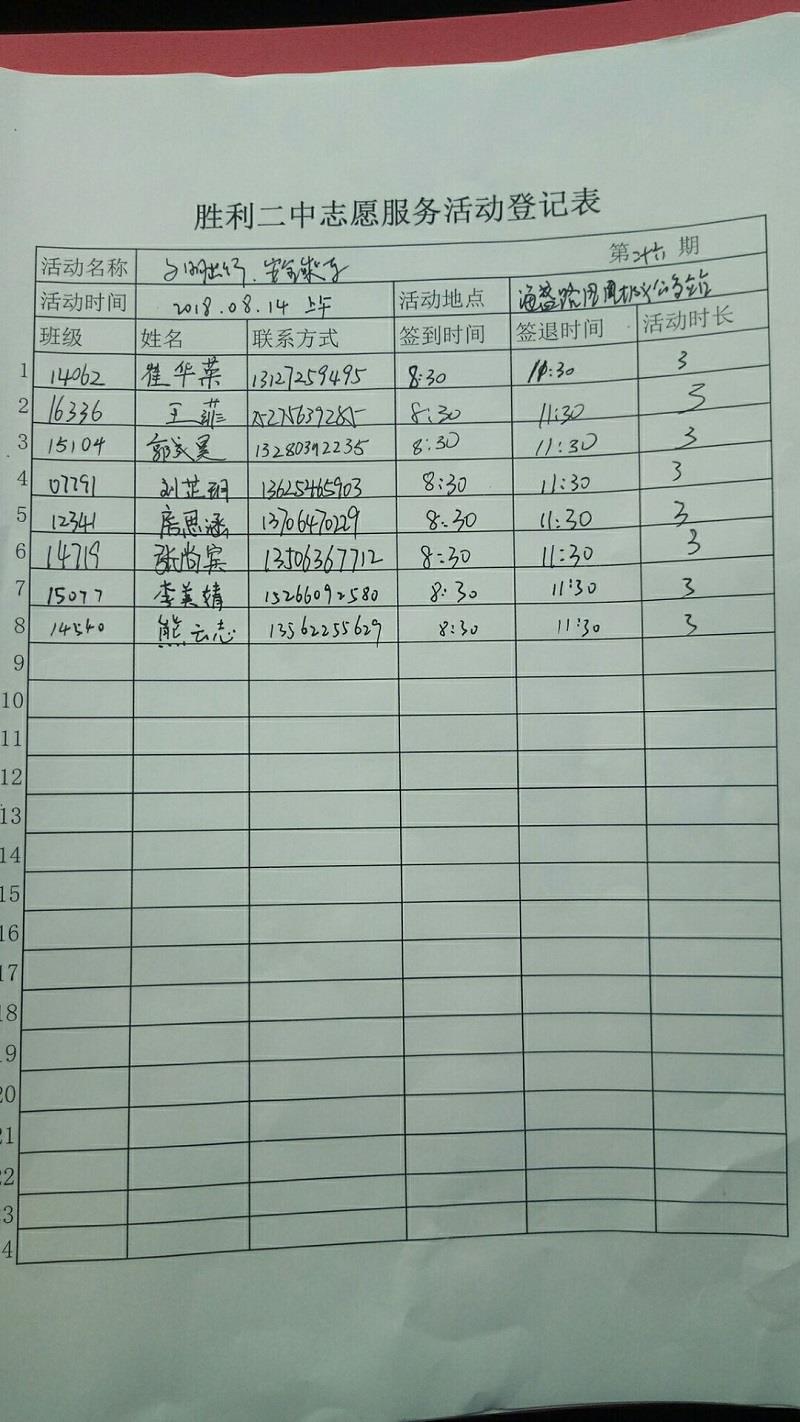 胜利二中志愿服务活动登记表
活动名称 文明出行、安全乘车 第二十六期
活动时间 2018.08.14 上午 活动地点 海盛路
班级 姓名 联系方式 签到时间 签退时间 活动时长
1 14062 崔华荣 13127259495 8:30 11:30 3
2 16336 王菲 15275639285 8:30 11:30 3
3 15104 郭成昊 13280392235 8:30 11:30 3
4 07791 刘芷玥 13625465903 8:30 11:30 3
5 12341 房思涵 13706470229 8:30 11:30 3
6 14719 张尚宾 13506367712 8:30 11:30 3
7 15077 李美婧 15266092580 8:30 11:30 3
8 14540 熊云志 13562255629 8:30 11:30 3
9
10
11
12
13
14
15
16
17
18
19
20
21
22
3
4